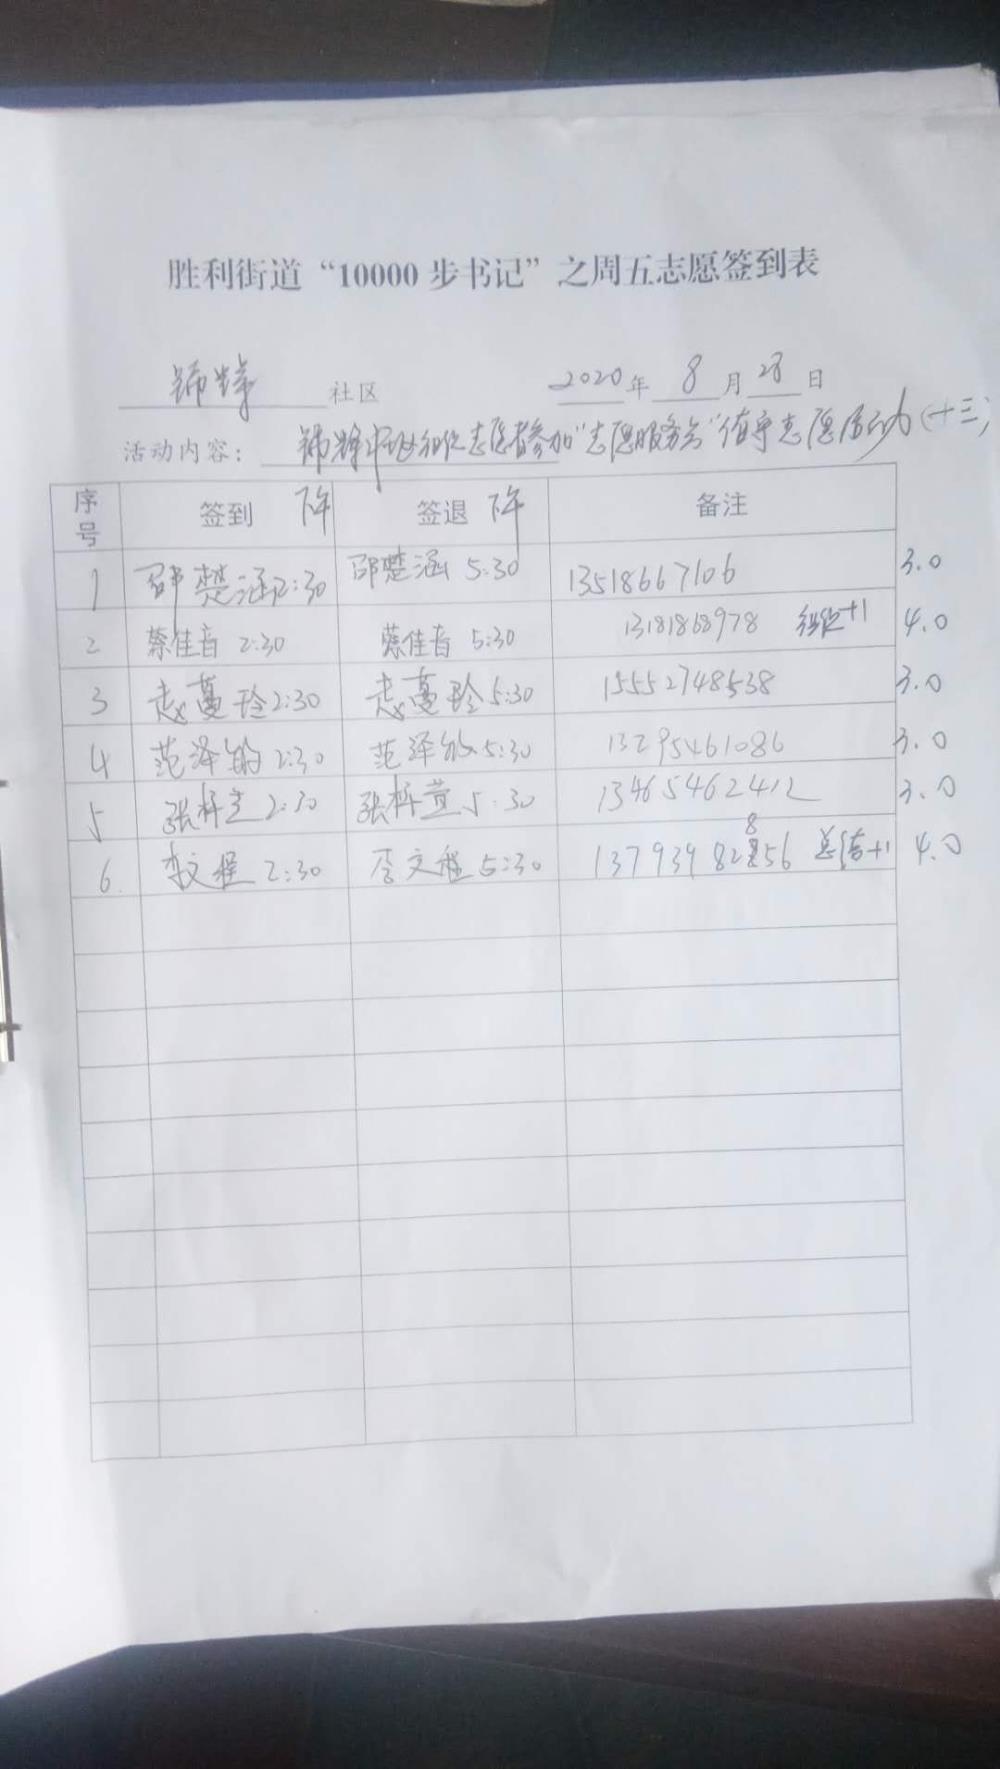 胜利街道“10000步书记”之周五志愿签到表
锦华社区 2020年8月28日
活动内容： 志愿者参加“志愿服务台”值守志愿活动（十三）
序号 签到 下午 签退 下午 备注
1 邵楚涵2:30 邵楚涵 5:30 13518667106 3.0
2 蔡佳音 2:30 蔡佳音 5:30 13181868978 组织+1 4.0
3 赵蔓玲2:30 赵蔓玲5:30 15552748538 3.0
4 范泽 2:30 范泽 5:30 13295461086 3.0
5 张梓萱 2:30 张梓萱 5:30 13465462412 3.0
6. 李文程 2:30 李文程 5:30 13793982856 总结+1 4.0